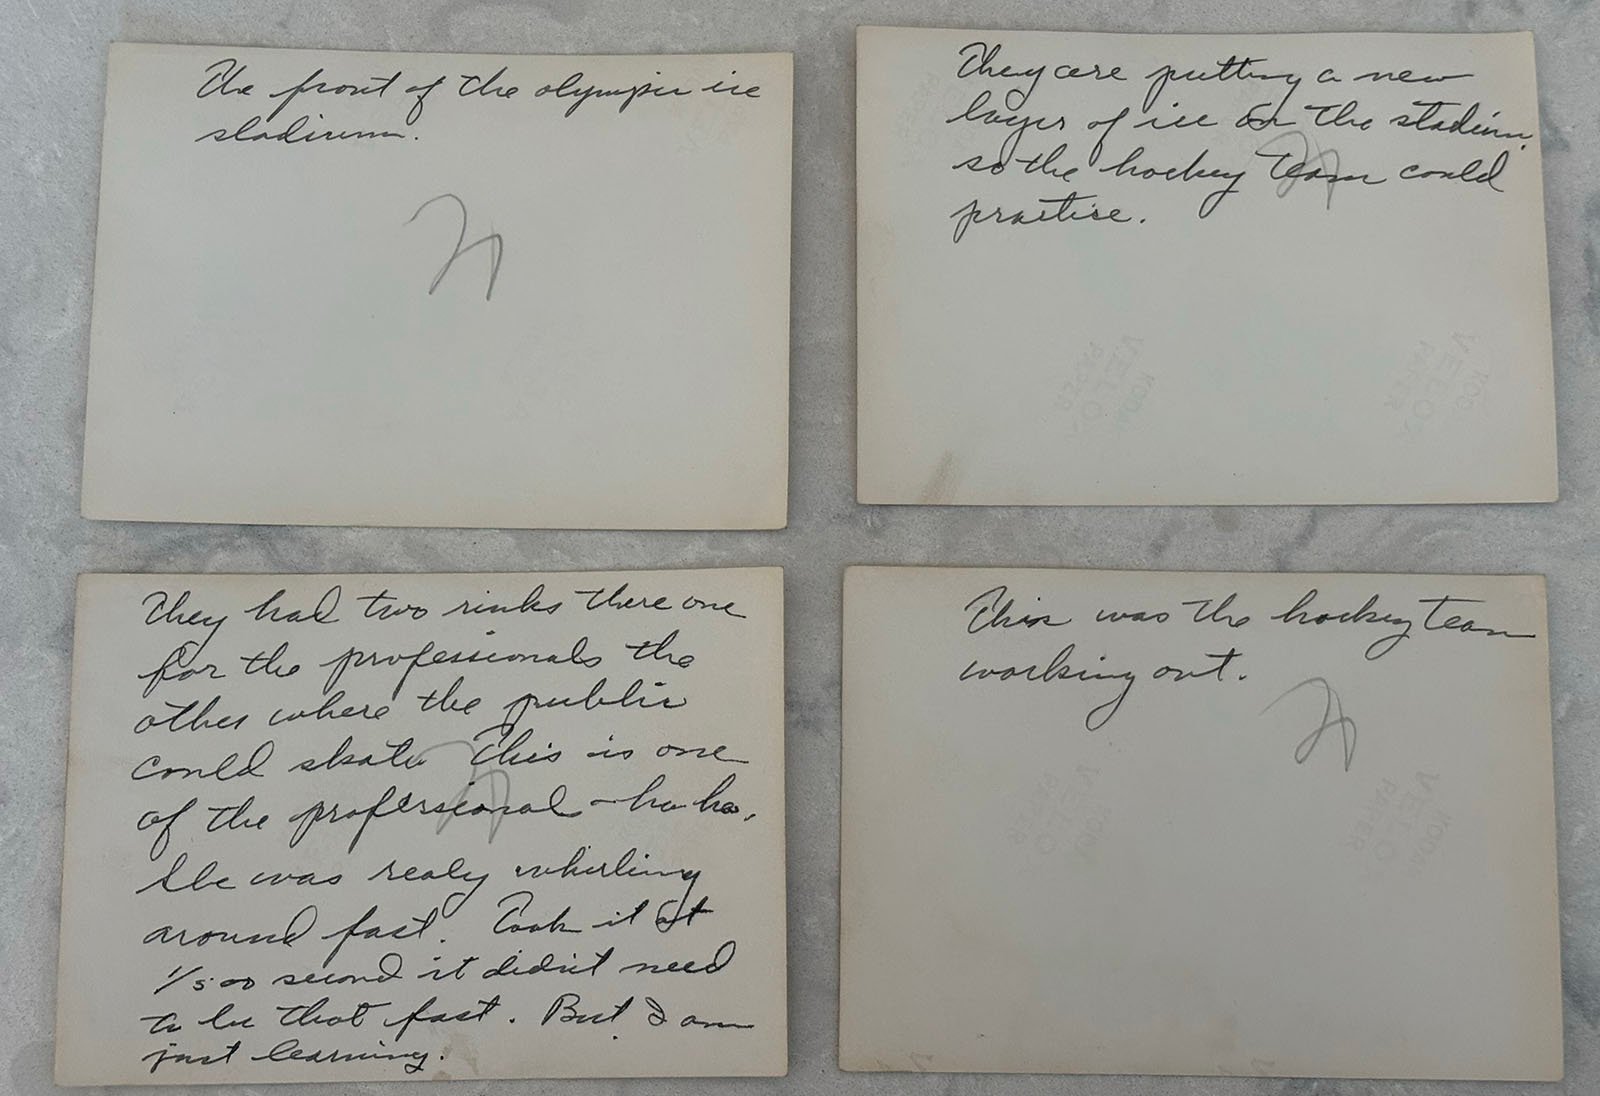 The front of the olympic ice
stadium.
They are putting a new
layer of ice on the stadium,
so the hockey team could
practise.
They had two rinks there one
for the professionals the
other where the public
could skate. This is one
of the professional - ha ha.
She was realy whirling
around fast. Took it at
1/500 second it didn't need
to be that fast. But I am
just learning.
This was the hockey team
working out.
VELOX